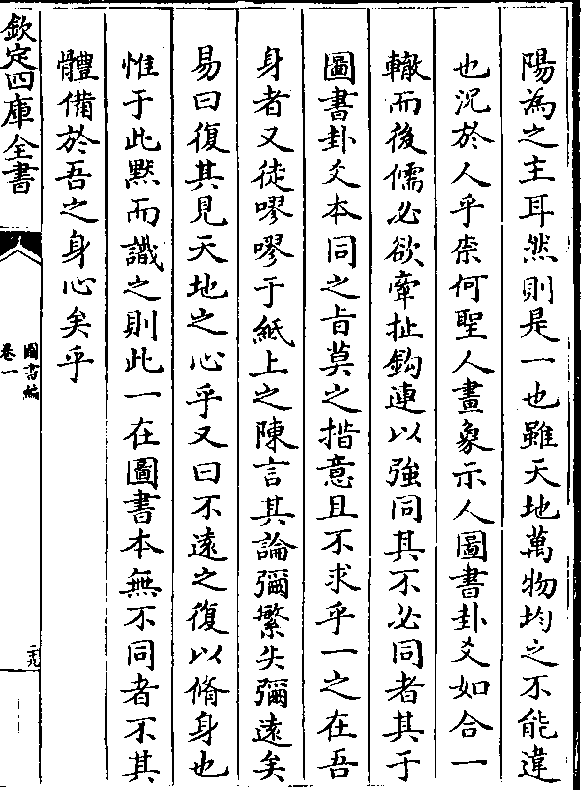 陽為之主耳然則是一也雖天地萬物均之不能違
也況於人乎柰何聖人畫象示人圖書卦爻如合一
轍而後儒必欲牽扯鈎連以強同其不必同者其于
圖書卦爻本同之旨莫之措意且不求乎一之在吾
身者又徒嘐嘐于紙上之陳言其論彌繁失彌遠矣
易曰復其見天地之心乎又曰不遠之復以脩身也
惟于此黙而識之則此一在圖書本無不同者不其
體備於吾之身心矣乎
欽定四庫全書
圖書編
卷一